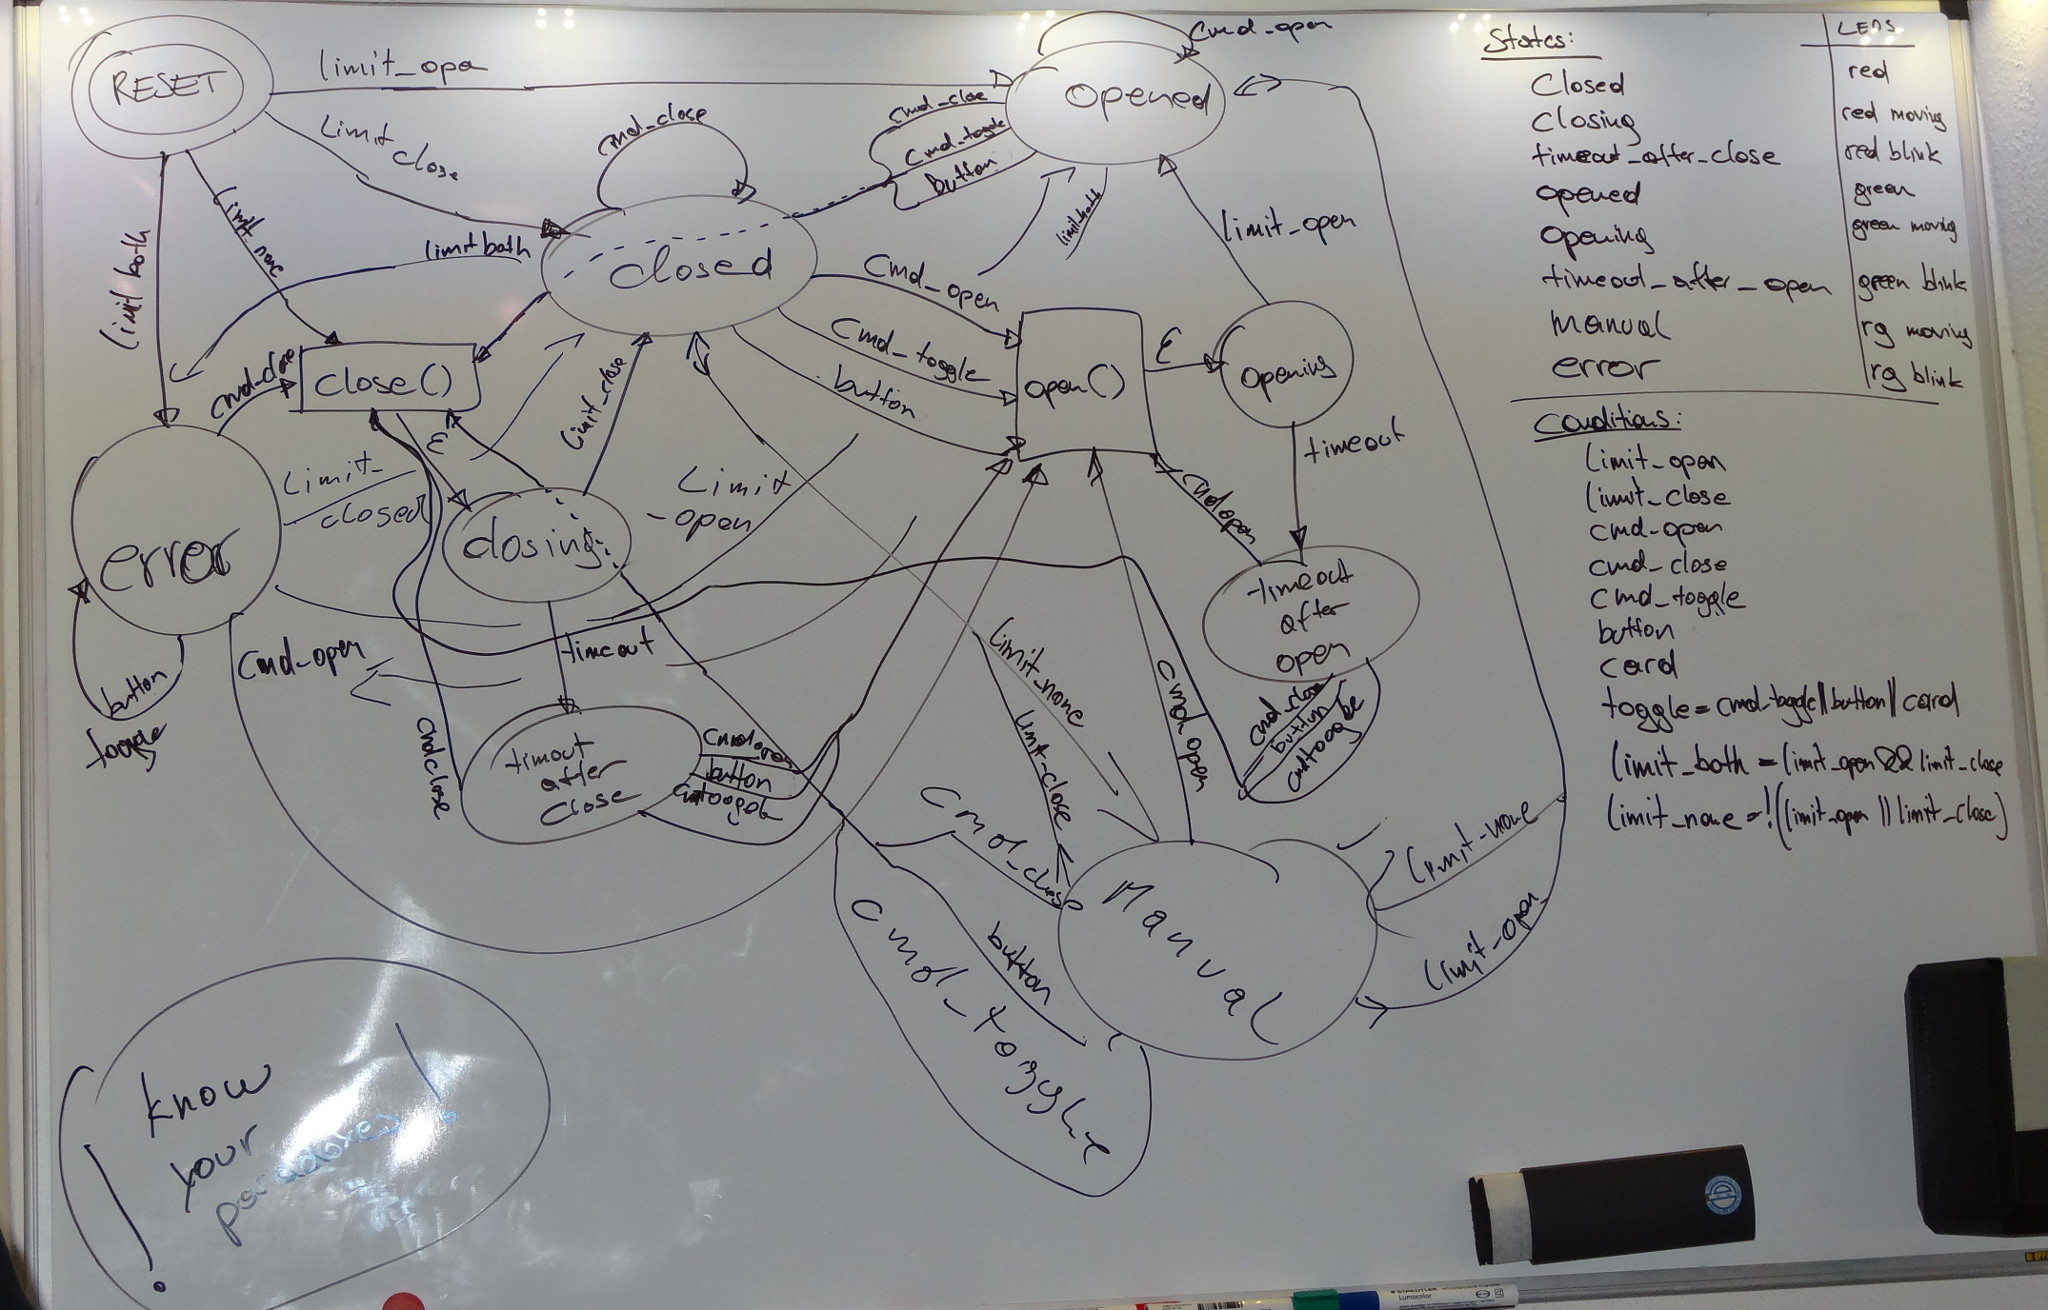 RESET
limit_ope
Limit close
limit both
limit_none
cmd_close
cmd_open
opened
cmd_close
cmd_toggle
button
limit both
closed
limit both
limit_open
cmd_open
cmd_toggle
button
open()
ε
opening
timeout
cmd_close
close()
ε
limit_close
error
Limit_
closed
closing
Limit
-open
button
toggle
cmd_open
timeout
cmdclose
timout
after
close
cmdopen
button
cmd open
timeout
after
open
cmd_close
button
limit_none
limit_close
cmd open
cmd_close
button
cmd_toggle
Manual
limit_none
limit_open
know
your
paradoxes!
States:
LEDS
Closed
red
closing
red moving
timeout_after_close
red blink
opened
green
opening
green moving
timeout_after_open
green blink
manual
rg moving
error
rg blink
Conditions:
limit_open
limit_close
cmd_open
cmd_close
cmd_toggle
button
card
toggle = cmd_toggle || button || card
limit_both = limit_open && limit_close
limit_none = !(limit_open || limit_close)
STAEDTLER
Lumocolor